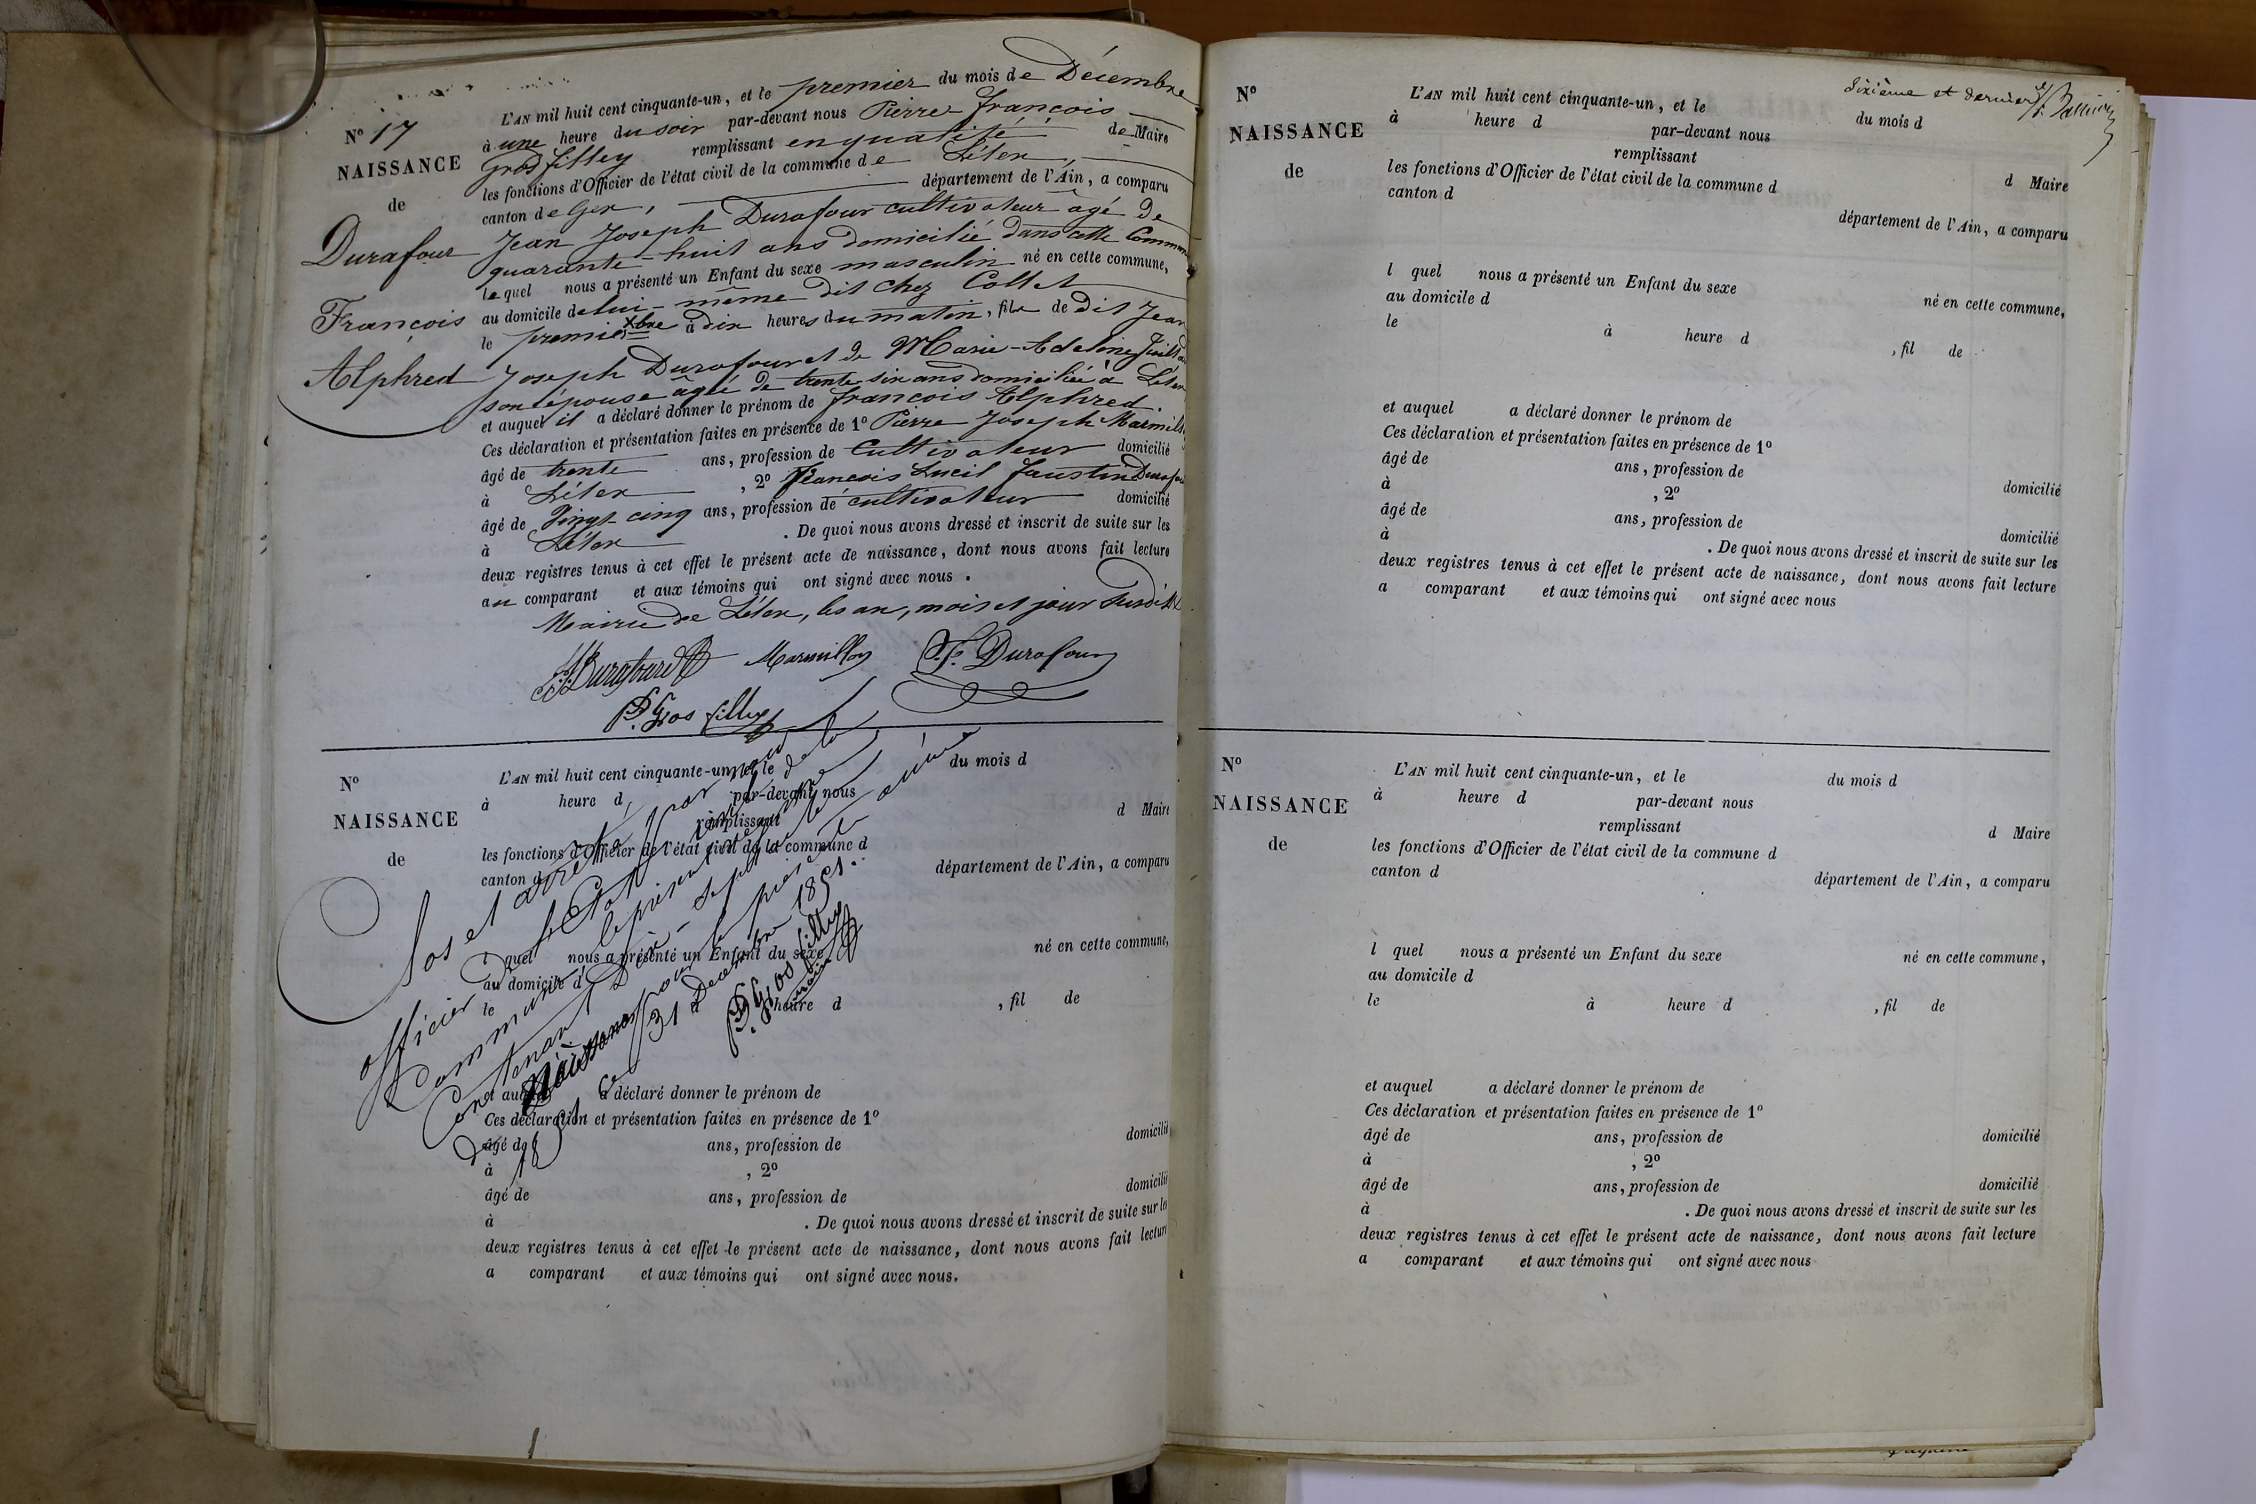 N° 17
NAISSANCE
de
Durafour
François
Alphred
L'AN mil huit cent cinquante-un, et le premier du mois de Décembre
à une heure du soir par-devant nous Pierre François
Grosfilley remplissant en qualité de Maire
les fonctions d'Officier de l'état civil de la commune de Lélex,
canton de Gex, département de l'Ain, a comparu
Jean Joseph Durafour cultivateur âgé de
quarante-huit ans domicilié dans cette Commune
lequel nous a présenté un Enfant du sexe masculin né en cette commune,
au domicile de lui-même dit chez Collet
le premier Xbre à dix heures du matin, fils de dit Jean
Joseph Durafour et de Marie-Adeline
son épouse âgée de trente six ans domiciliée à Lélex
et auquel il a déclaré donner le prénom de françois Alphred.
Ces déclaration et présentation faites en présence de 1° Pierre Joseph Marmillon
âgé de trente ans, profession de Cultivateur domicilié
à Lélex, 2° François Luci l faustin Durafour
âgé de Vingt-cinq ans, profession de cultivateur domicilié
à Lélex. De quoi nous avons dressé et inscrit de suite sur les
deux registres tenus à cet effet le présent acte de naissance, dont nous avons fait lecture
au comparant et aux témoins qui ont signé avec nous.
Mairie de Lélex, les an, mois et jour susdits
J.J. Durafour Marmillon F. Durafour
P.F. Grosfilley
N°
NAISSANCE
de
L'AN mil huit cent cinquante-un, et le du mois d
à heure d par-devant nous
remplissant d Maire
les fonctions d'Officier de l'état civil de la commune d
canton d département de l'Ain, a comparu
l quel nous a présenté un Enfant du sexe né en cette commune,
au domicile d
le à heure d, fil de
et auquel a déclaré donner le prénom de
Ces déclaration et présentation faites en présence de 1°
âgé de ans, profession de domicilié
à, 2°
âgé de ans, profession de domicilié
à. De quoi nous avons dressé et inscrit de suite sur les
deux registres tenus à cet effet le présent acte de naissance, dont nous avons fait lecture
a comparant et aux témoins qui ont signé avec nous.
Clos et arrêté par nous
officier de l'Etat civil de la
Commune le présent registre
Contenant Dix-sept actes
de Naissances pour la présente année
1851 Ce 31 Decembre 1851.
P.F. Grosfilley
maire
dixième et dernier
N°
NAISSANCE
de
L'AN mil huit cent cinquante-un, et le du mois d
à heure d par-devant nous
remplissant d Maire
les fonctions d'Officier de l'état civil de la commune d
canton d département de l'Ain, a comparu
l quel nous a présenté un Enfant du sexe né en cette commune,
au domicile d
le à heure d, fil de
et auquel a déclaré donner le prénom de
Ces déclaration et présentation faites en présence de 1°
âgé de ans, profession de domicilié
à, 2°
âgé de ans, profession de domicilié
à. De quoi nous avons dressé et inscrit de suite sur les
deux registres tenus à cet effet le présent acte de naissance, dont nous avons fait lecture
a comparant et aux témoins qui ont signé avec nous
N°
NAISSANCE
de
L'AN mil huit cent cinquante-un, et le du mois d
à heure d par-devant nous
remplissant d Maire
les fonctions d'Officier de l'état civil de la commune d
canton d département de l'Ain, a comparu
l quel nous a présenté un Enfant du sexe né en cette commune,
au domicile d
le à heure d, fil de
et auquel a déclaré donner le prénom de
Ces déclaration et présentation faites en présence de 1°
âgé de ans, profession de domicilié
à, 2°
âgé de ans, profession de domicilié
à. De quoi nous avons dressé et inscrit de suite sur les
deux registres tenus à cet effet le présent acte de naissance, dont nous avons fait lecture
a comparant et aux témoins qui ont signé avec nous